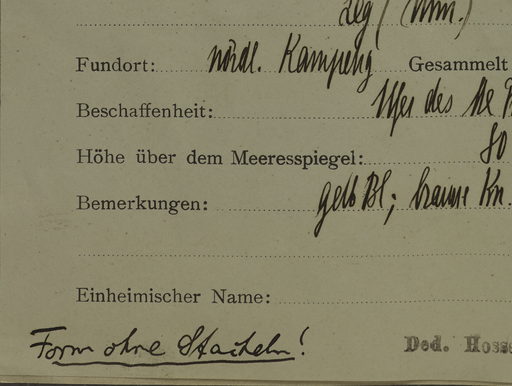 Leg ( (Mim.)
Fundort: nördl. Kampeng Gesammelt
Beschaffenheit: Ufer des Me P
Höhe über dem Meeresspiegel: 80
Bemerkungen: gelb Bl; braune Kn.
Einheimischer Name:
Form ohne Stacheln! Ded. Hosse